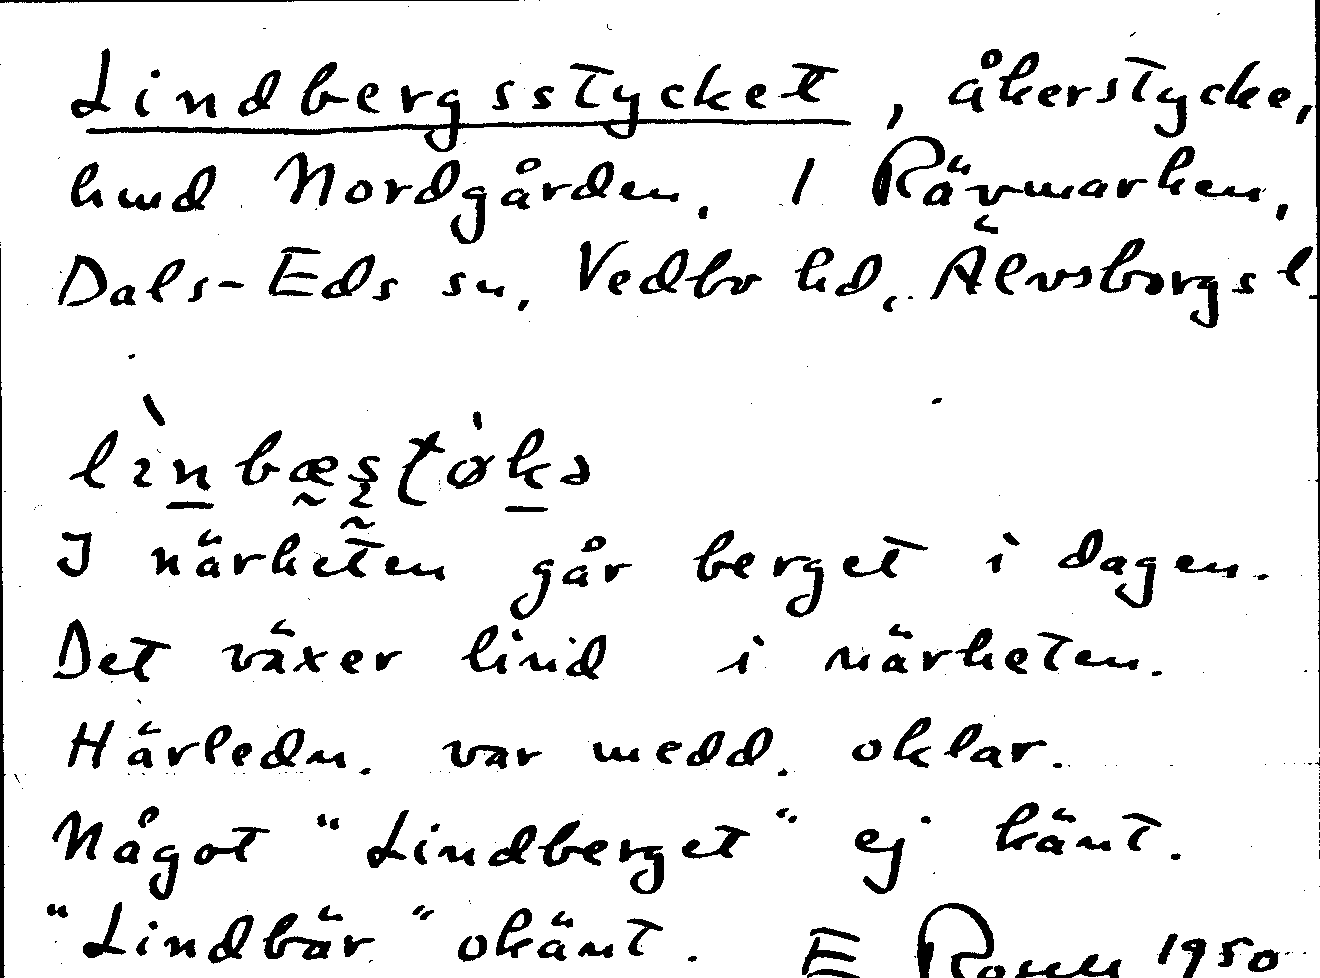 Lindbergsstycket, åkerstycke,
hmd Nordgården. 1 Rävmarken,
Dals-Eds sn, Vedbo hd, Älvsborgs l.
I närheten går berget i dagen.
Det växer lind i närheten.
Härledn. var medd. oklar.
Något "Lindberget" ej känt.
"Lindbär" okänt. E 1950